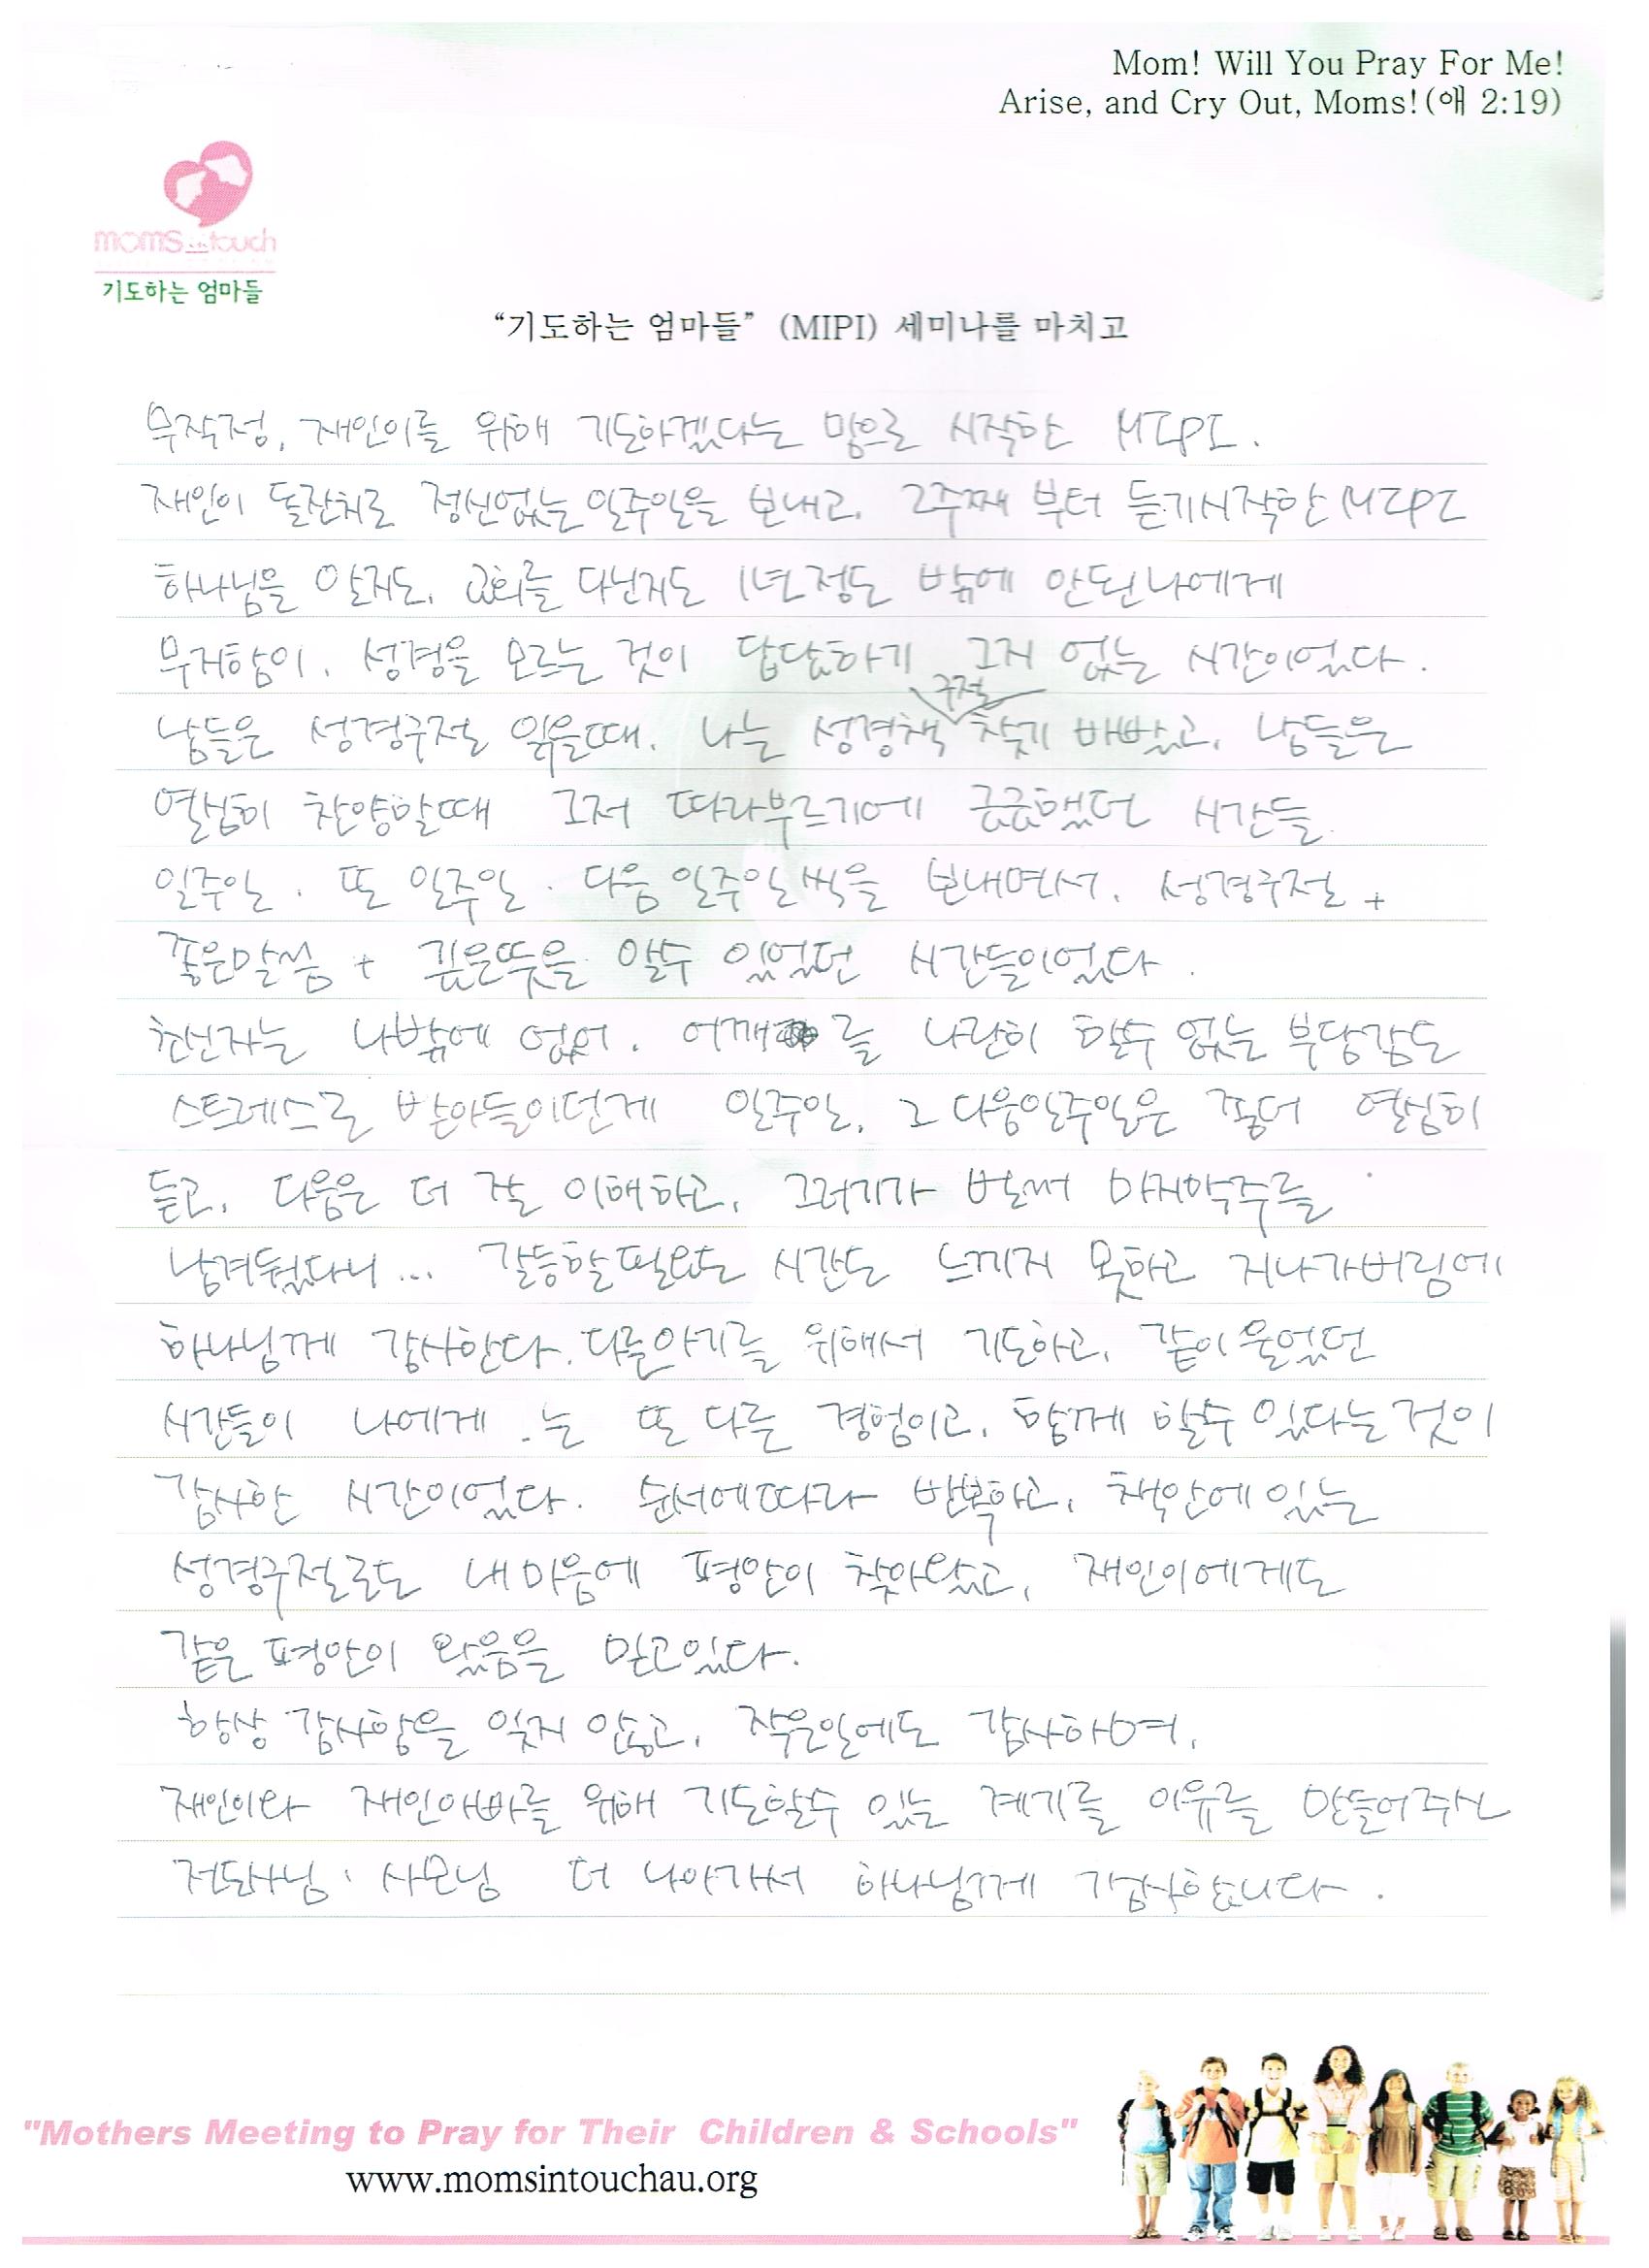 Mom! Will You Pray For Me!
Arise, and Cry Out, Moms!(애 2:19)
moms in touch
기도하는 엄마들
“기도하는 엄마들” (MIPI) 세미나를 마치고
무작정, 재인이를 위해 기도하겠다는 맘으로 시작한 MIPI.
재인이 돌잔치로 정신없는 일주일을 보내고, 2주째 부터 듣기시작한 MIPI
하나님을 안지도, 교회를 다닌지도 1년정도 밖에 안된나에게
무지함이, 성경을 모르는 것이 답답하기 그지 없는 시간이었다.
남들은 성경구절 읽을때, 나는 성경책 구절 찾기 바빴고, 남들은
열심히 찬양할때 그저 따라부르기에 급급했던 시간들.
일주일. 또 일주일. 다음 일주일씩을 보내면서, 성경구절 +
좋은말씀 + 깊은뜻을 알수 있었던 시간들이었다.
헌신자는 나밖에 없어, 어깨를 나란히 할수 없는 부담감도
스트레스로 받아들이던게 일주일, 그 다음일주일은 좀더 열심히
듣고, 다음은 더 잘 이해하고, 그러기가 벌써 마지막주를
남겨뒀다니... 갈등할필요도 시간도 느끼지 못하고 지나가버림에
하나님께 감사한다. 다른아기를 위해서 기도하고, 같이울었던
시간들이 나에게.는 또 다른 경험이고, 함께 할수 있다는것이
감사한 시간이었다. 순서에따라 반복하고, 책안에있는
성경구절로도 내마음에 평안이 찾아왔고, 재인이에게도
같은 평안이 왔음을 믿고있다.
항상 감사함을 잊지 않고, 작은일에도 감사하며,
재인이와 재인아빠를 위해 기도할수 있는 계기를 이유를 만들어주신
전도사님, 사모님 더 나아가서 하나님께 감사합니다.
"Mothers Meeting to Pray for Their Children & Schools"
www.momsintouchau.org